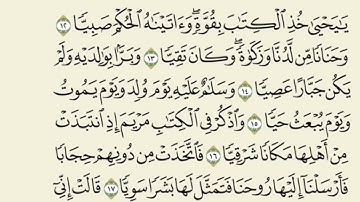 يَٰيَحۡيَىٰ خُذِ ٱلۡكِتَٰبَ بِقُوَّةٖۖ وَءَاتَيۡنَٰهُ ٱلۡحُكۡمَ صَبِيّٗا ١٢
وَحَنَانٗا مِّن لَّدُنَّا وَزَكَوٰةٗۖ وَكَانَ تَقِيّٗا ١٣ وَبَرَّۢا بِوَٰلِدَيۡهِ وَلَمۡ
يَكُن جَبَّارًا عَصِيّٗا ١٤ وَسَلَٰمٌ عَلَيۡهِ يَوۡمَ وُلِدَ وَيَوۡمَ يَمُوتُ
وَيَوۡمَ يُبۡعَثُ حَيّٗا ١٥ وَٱذۡكُرۡ فِي ٱلۡكِتَٰبِ مَرۡيَمَ إِذِ ٱنتَبَذَتۡ
مِنۡ أَهۡلِهَا مَكَانٗا شَرۡقِيّٗا ١٦ فَٱتَّخَذَتۡ مِن دُونِهِمۡ حِجَابٗا
فَأَرۡسَلۡنَآ إِلَيۡهَا رُوحَنَا فَتَمَثَّلَ لَهَا بَشَرٗا سَوِيّٗا ١٧ قَالَتۡ إِنِّيٓ